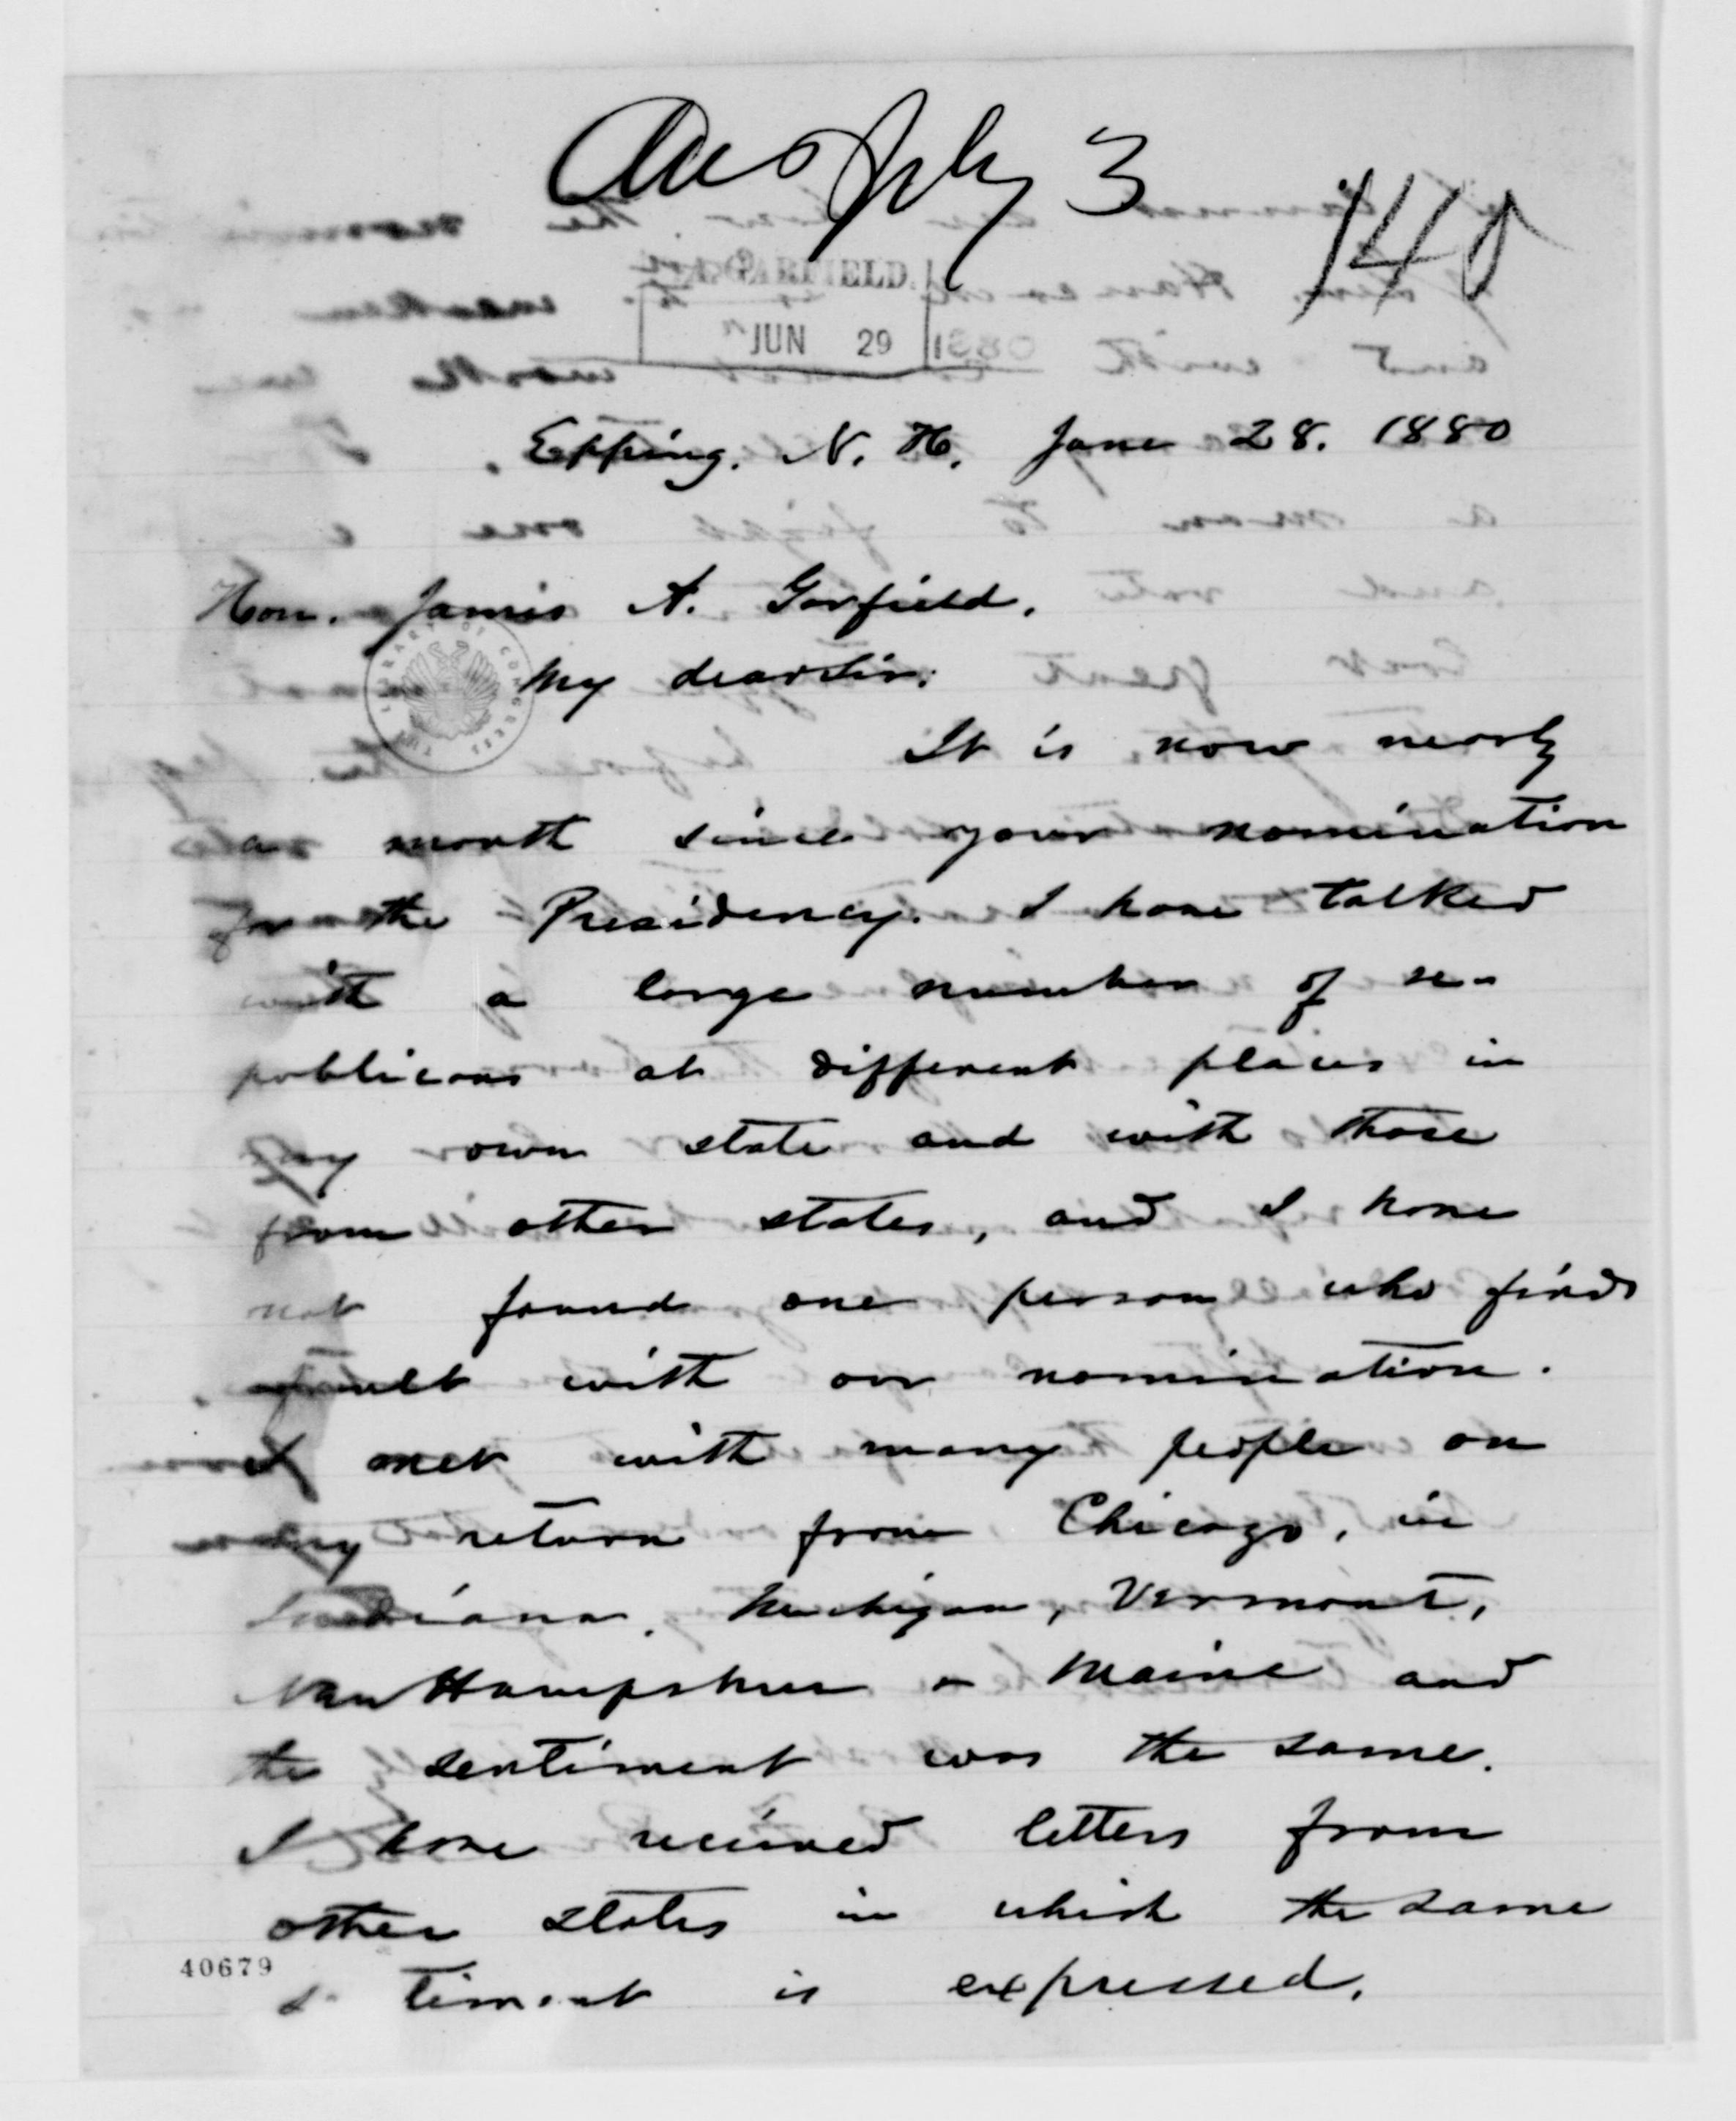 Ans July 3
140
J. A. GARFIELD.
JUN 29 1880
Epping, N. H. June 28. 1880
Hon. James A. Garfield,
My dear Sir:
It is now nearly
a month since your nomination
for the Presidency. I have talked
with a large number of re-
publicans at different places in
my own state and with those
from other states, and I have
not found one person who finds
fault with our nomination.
I met with many people on
my return from Chicago, in
Indiana, Michigan, Vermont,
New Hampshire & Maine and
the sentiment was the same.
I have received letters from
other states in which the same
timent is expressed.
40679
THE LIBRARY OF CONGRESS